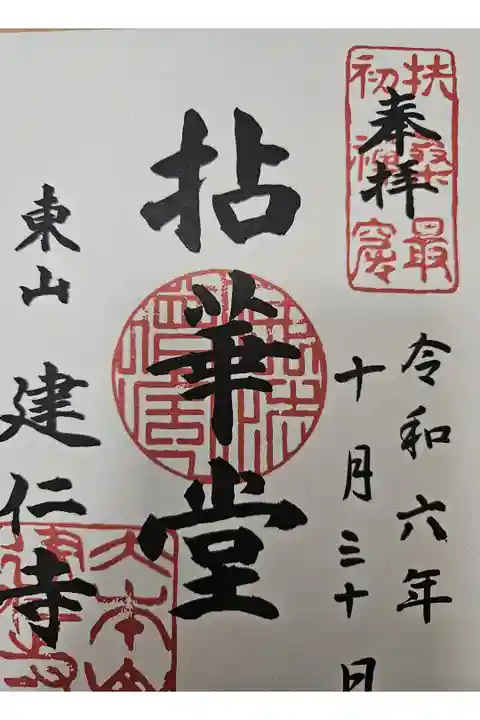 奉拝
扶桑最
初禅窟
令和六年
十月三十日
拈華堂
東山 建仁寺